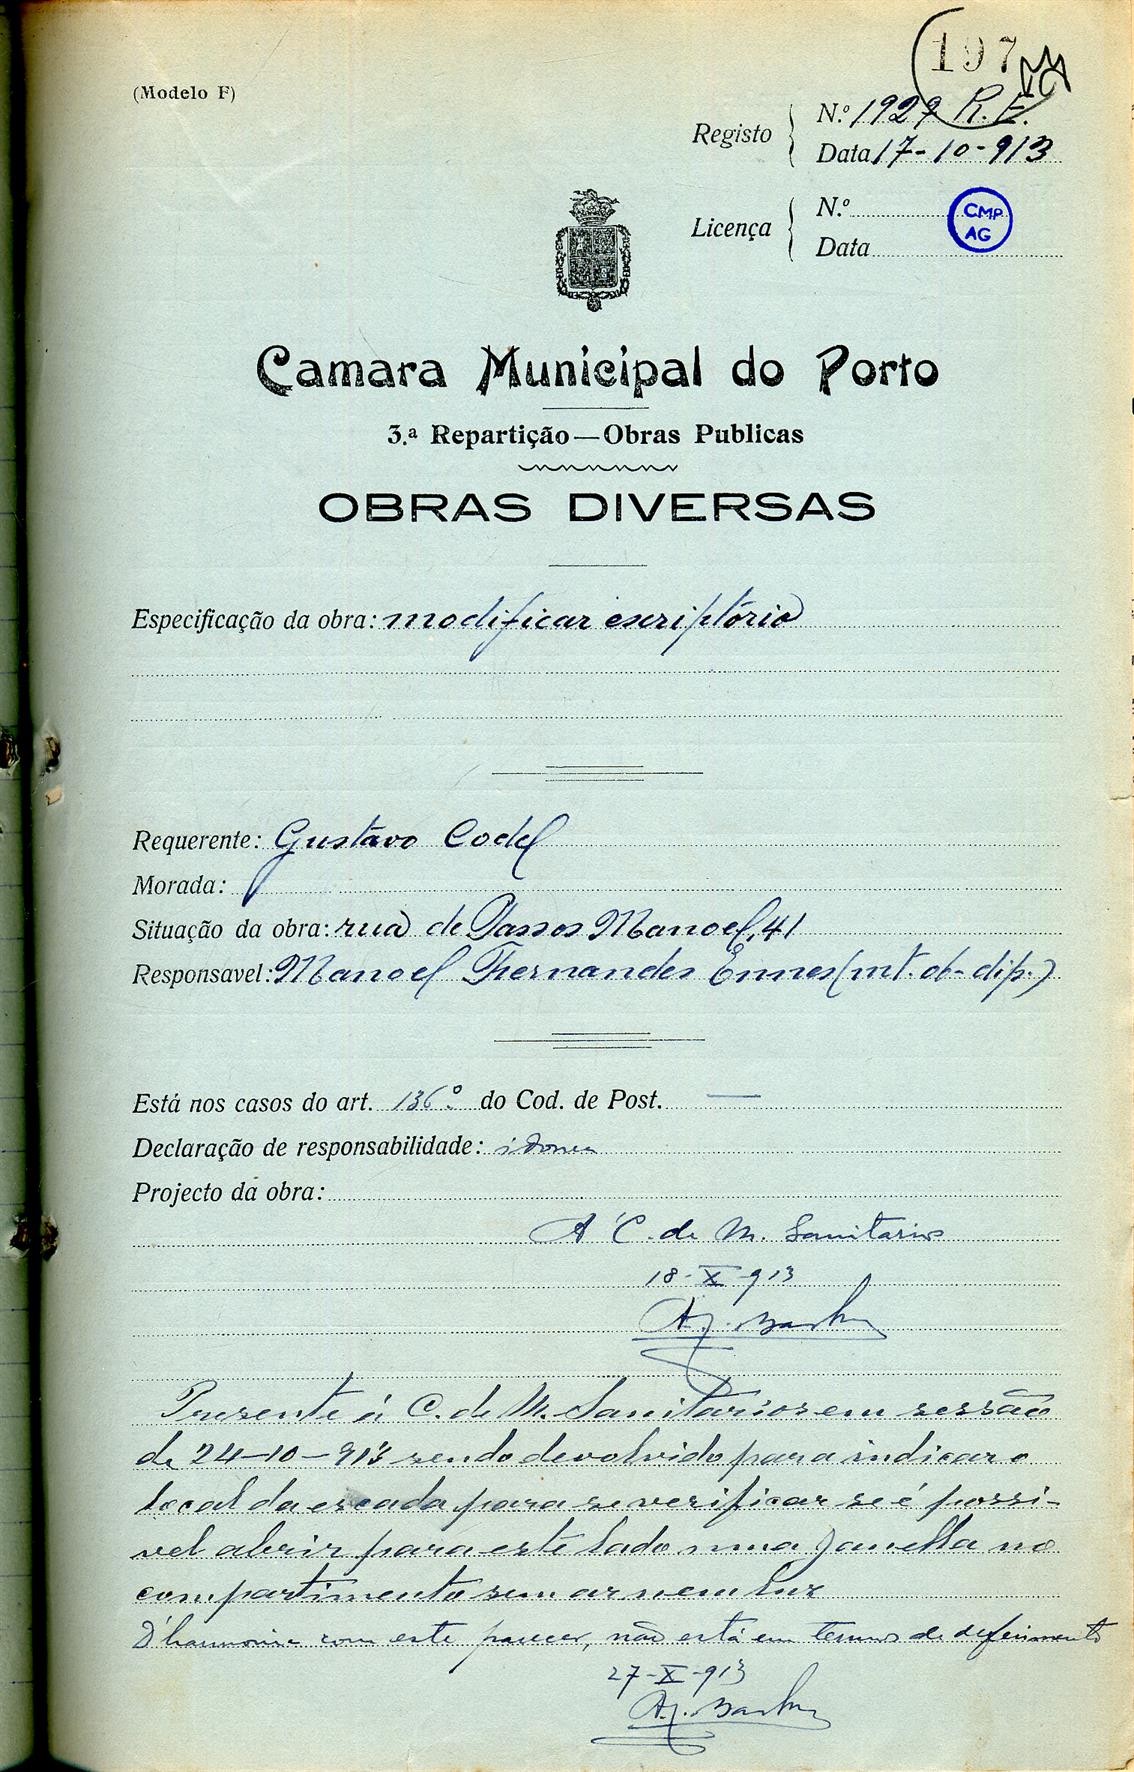 197
(Modelo F)
Registo
N.º 1929 R. E.
Data 17-10-913
Licença
N.º
Data
CMP
AG
Camara Municipal do Porto
3.ª Repartição—Obras Publicas
OBRAS DIVERSAS
Especificação da obra: modificar escriptório
Requerente: Gustavo Codel
Morada:
Situação da obra: rua de Passos Manoel, 41
Responsavel: Manoel Fernandes Ennes (mt. ob- dip.)
Está nos casos do art. 136º do Cod. de Post. —
Declaração de responsabilidade: idonea
Projecto da obra:
A' C. de M. Sanitarios
18-X-913
Presente á C. de M. Sanitarios em sessão
de 24-10-913 sendo devolvido para indicar o
local da escada para se verificar se é possi-
vel abrir para este lado uma janella no
compartimento sem ar nem luz
D'harmonia com este parecer, não está em termos de deferimento
27-X-913